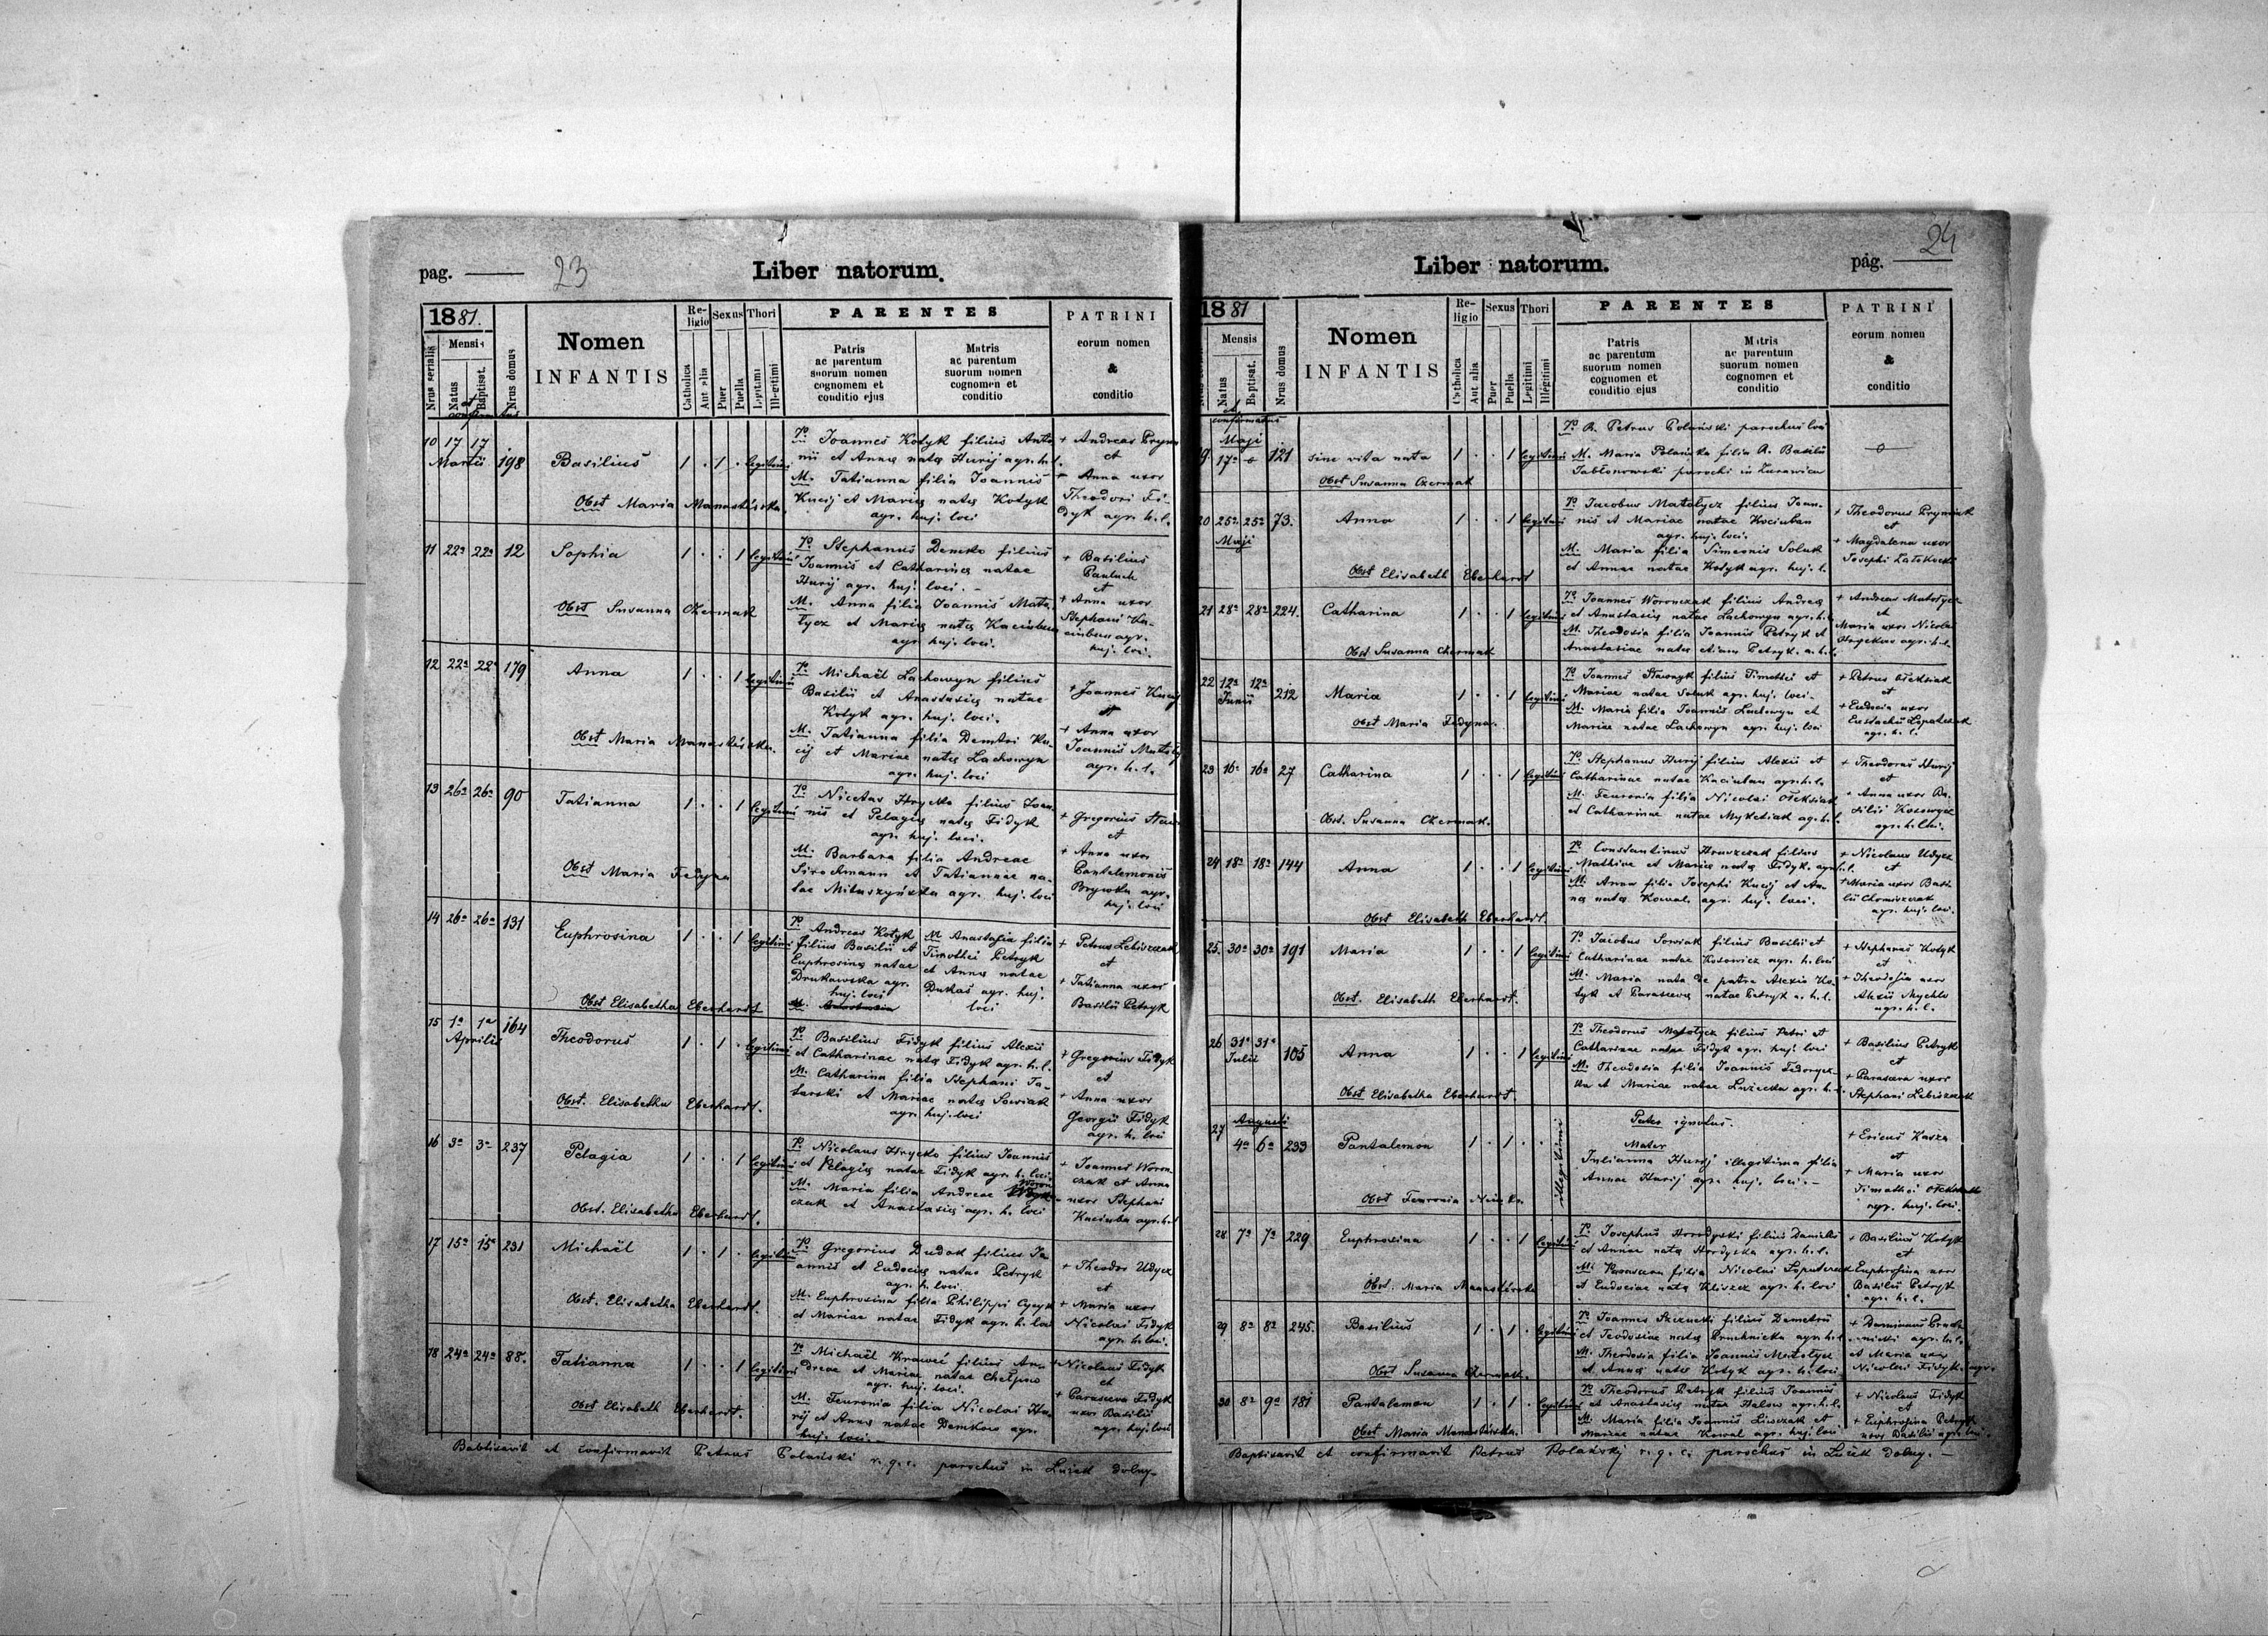 pag. 23
Liber natorum.
1881.
Nrus serialis
Mensis
Natus
Baptisat.
et confirmatus
Nrus domus
Nomen
INFANTIS
Religio
Catholica
Aut alia
Sexus
Puer
Puella
Thori
Legitimi
Illegitimi
PARENTES
Patris
ac parentum
suorum nomen
cognomem et
conditio ejus
Matris
ac parentum
suorum nomen
cognomen et
conditio
PATRINI
eorum nomen
&
conditio
10 17 17 Martii 198 Basilius 1 . 1 . legitimi
Obst Maria Manastérska
P. Joannes Kotyk filius Anto
nii et Annæ natæ Hurij agr. h. l.
M. Tatianna filia Joannis
Kucij et Mariæ natæ Kotyk
agr. huj. loci
+ Andreas Prym
et
+ Anna uxor
Theodori Fi-
dyk agr. h. l.
11 22a 22a 12 Sophia 1 . . 1 legitimi
Obst Susanna Czermak
P. Stephanus Demko filius
Joannis et Catharinæ natae
Hurij agr. huj. loci. -
M. Anna filia Joannis Mato-
łycz et Mariæ natæ Kaciuban
agr. huj. loci.
+ Basilius
et
+ Anna uxor
Stephani Ka-
ciuban agr.
huj. loci.
12 22a 22a 179 Anna 1 . . 1 legitimi
Obst Maria Manastérska.
P. Michaël Lachowyn filius
Basilii et Anastasiæ natae
Kotyk agr. huj. loci.
M. Tatianna filia Demtri Ku-
cij et Mariae natæ Lachowyn
agr. huj. loci
+ Joannes Kucij
et
+ Anna uxor
Joannis Matoły
agr. h. l.
13 26a 26a 90 Tatianna 1 . . 1 legitimi
Obst Maria Fedyna
P. Nicetas Hrycko filius Joan-
nis et Pelagiæ natæ Fidyk
agr. huj. loci.
M. Barbara filia Andreae
et Tatiannae na-
tae Mitaszyńska agr. huj. loci
+ Gregorius
et
+ Anna uxor
Pantalemonis
agr.
huj. loci
14 26a 26a 131 Euphrosina 1 . . 1 legitimi
Obst Elisabetha Eberhardt
P. Andreas Kotyk
filius Basilii et
Euphrosinæ natae
Drukawska agr.
huj. loci
M. Anastasia filia
Timothei Petryk
et Annæ natae
Dukas agr. huj.
loci
+ Petrus Lebiszczak
et
+ Tatianna uxor
Basilii Petryk
15 1a 1a Aprilis 164 Theodorus 1 . 1 . legitimi
Obst. Elisabetha Eberhardt.
P. Basilius Fidyk filius Alexii
et Catharinae natæ Fidyk agr. h. l.
M. Catharina filia Stephani Ta-
tarski et Mariae natæ Sowiak
agr. huj. loci
+ Gregorius Fidyk
et
+ Anna uxor
Georgii Fidyk
agr. h. loci
16 3a 3a 237 Pelagia 1 . . 1 legitimi
Obst. Elisabetha Eberhardt.
P. Nicolaus Hrycko filius Joannis
et Pelagiæ natae Fidyk agr. h. loci.
M. Maria filia Andreae Woron
czak et Anastasiæ agr. h. loci
+ Joannes Woron
czak et Anna
uxor Stephani
Kaciuba agr. h. l
17 15a 15a 231 Michaël 1 . 1 . legitimi
Obst. Elisabetha Eberhardt.
P. Gregorius Dudok filius Jo
annis et Eudociæ natae Petryk
agr. h. loci.
M. Euphrosina filia Philippi Cycyk
et Mariae natae Fidyk agr. h. loci
+ Theodor Udycz
et
+ Maria uxor
Nicolai Fidyk
agr. h. loci.
18 24a 24a 88. Tatianna 1 . . 1 legitimi
Obst Elisabeth Eberhardt.
P. Michaël Kraweć filius An-
dreae et Mariae natae Chełpno
agr. huj. loci.
M. Feuronia filia Nicolai Hu-
rij et Annæ natae Demkow agr.
huj. loci.
+ Nicolaus Fidyk
et
+ Parasceva Fidyk
uxor Basilii
agr. huj. loci
Babtisavit et confirmavit Petrus Polański r. g. c. parochus in Łużek dolny.
Liber natorum.
pag. 24
1881
Mensis
Natus
Baptisat.
et confirmatus
Nrus domus
Nomen
INFANTIS
Religio
Catholica
Aut alia
Sexus
Puer
Puella
Thori
Legitimi
Illegitimi
PARENTES
Patris
ac parentum
suorum nomen
cognomen et
conditio ejus
Matris
ac parentum
suorum nomen
cognomen et
conditio
PATRINI
eorum nomen
&
conditio
19 Maji 17a 121 sine vita nata 1 . . 1 legitimi
Obst Susanna Czermak
P. R. Petrus Polański parochus loci
M. Maria Polańska filia R. Basilii
Jabłonowski parochi in Żurawica
20 25a 25a Maji 73. Anna 1 . . 1 legitimi
Obst Elisabeth Eberhardt
P. Jacobus Matołycz filius Joan-
nis et Mariae natae Kociuban
agr. huj. loci.
M. Maria filia Simeonis Soluk
et Annae natae Kotyk agr. huj. l.
+ Theodorus Prymiak
et
+ Magdalena uxor
Josephi
21 28a 28a 224. Catharina 1 . . 1 legitimi
Obst Susanna Czermak
P. Joannes Woronczak filius Andreæ
et Anastasiæ natae Lachowyn agr. h. l.
M. Theodosia filia Joannis Petryk et
Anastasiae natæ etiam Petryk. a. h. l.
+ Andreas Matołycz
et
Maria uxor Nicolai
agr. h. l.
22 12a 12a Junii 212 Maria 1 . . 1 legitimi
Obst Maria Fedyna.
P. Joannes filius Timothei et
Mariae natae Soluk agr. huj. loci.
M. Maria filia Joannis Lachowyn et
Mariae natae Lachowyn agr. huj. loci
+ Petrus Ołeksiak
et
+ Eudocia uxor
Eustachii Łopatczak
agr. h. l.
23 16a 16a 27 Catharina 1 . . 1 legitimi
Obst. Susanna Czermak.
P. Stephanus Hurij filius Alexii et
Catharinae natae Kaciuban agr. h. l.
M. Feuronia filia Nicolai Ołeksiak
et Catharinae natae Myketiak ag. h. l.
+ Theodorus Hurij
et
+ Anna uxor Ba-
silii Kosowycz
agr. h. loci.
24 18a 18a 144 Anna 1 . . 1 legitimi
Obst Elisabeth Eberhardt.
P. Constantinus Hruszczak filius
Mathiae et Mariæ natæ Fidyk agr. h. l.
M. Anna filia Josephi Kucij et An-
næ natæ Kowal. agr. huj. loci.
+ Nicolaus Udycz
et
+ Maria uxor Basi-
lii
agr. huj. loci.
25. 30a 30a 191 Maria 1 . . 1 legitimi
Obst. Elisabeth Eberhardt.
P. Jacobus Sowiak filius Basilii et
Catharinae natae Kosowicz agr. h. loci
M. Maria nata de patre Alexio Ko-
tyk et Parascevæ natae Petryk a. h. l.
+ Stephanus Kotyk
et
+ Theodosia uxor
Alexii Mychlo
agr. h. l.
26 31a 31a Julii 105 Anna 1 . . 1 legitimi
Obst Elisabetha Eberhardt.
P. Theodorus Matołycz filius Petri et
Catharinae natae Fidyk agr. huj. loci
M. Theodosia filia Joannis Fedorycz-
ka et Mariae natae Łużecka agr. h. l.
+ Basilius Petryk
et
+ Parasceva uxor
Stephani Lebiszczak
27 Augusti 4a 6a 233 Pantalemon 1 . 1 . illegitimi
Obst Feuronia
Pater ignotus.
Mater
Julianna Hurij illegitima filia
Annae Hurij agr. huj. loci. -
+ Ericus Kasza
et
+ Maria uxor
Timothei Ołeksiak
agr. huj. loci.
28 7a 7a 229 Euphrosina 1 . . 1 legitimi
Obst. Maria Manastérska
P. Josephus Horodyski filius Danielis
et Annae natæ Hordyska agr. h. l.
M. Parasceva filia Nicolai Łopatczak
et Eudociae natæ Kliszcz agr. h. loci
+ Basilius Kotyk
et
Euphrosina uxor
Basilii Petryk
agr. h. l.
29 8a 8a 245. Basilius 1 . 1 . legitimi
Obst Susanna Czermak.
P. Joannes filius Demetrii
et Teodosiae natæ Druchnicka agr. h. l
M. Theodosia filia Joannis Matołycz
et Annæ natæ Kotyk agr. h. loci
+ Damianus
agr. h. l.
et Maria uxor
Nicolai Fidyk. agr.
30 8a 9a 181 Pantalemon 1 . 1 . legitimi
Obst Maria Manastérska.
P. Theodorus Petryk filius Joannis
et Anastasiæ natæ agr. h. l.
M. Maria filia Joannis et
Mariae natae Kowal agr. huj. loci
+ Nicolaus Fidyk
et
+ Euphrosina Petryk
uxor Basilii agr. loci.
Baptisavit et confirmavit Petrus Polański r. g. c. parochus in Łużek dolny. —